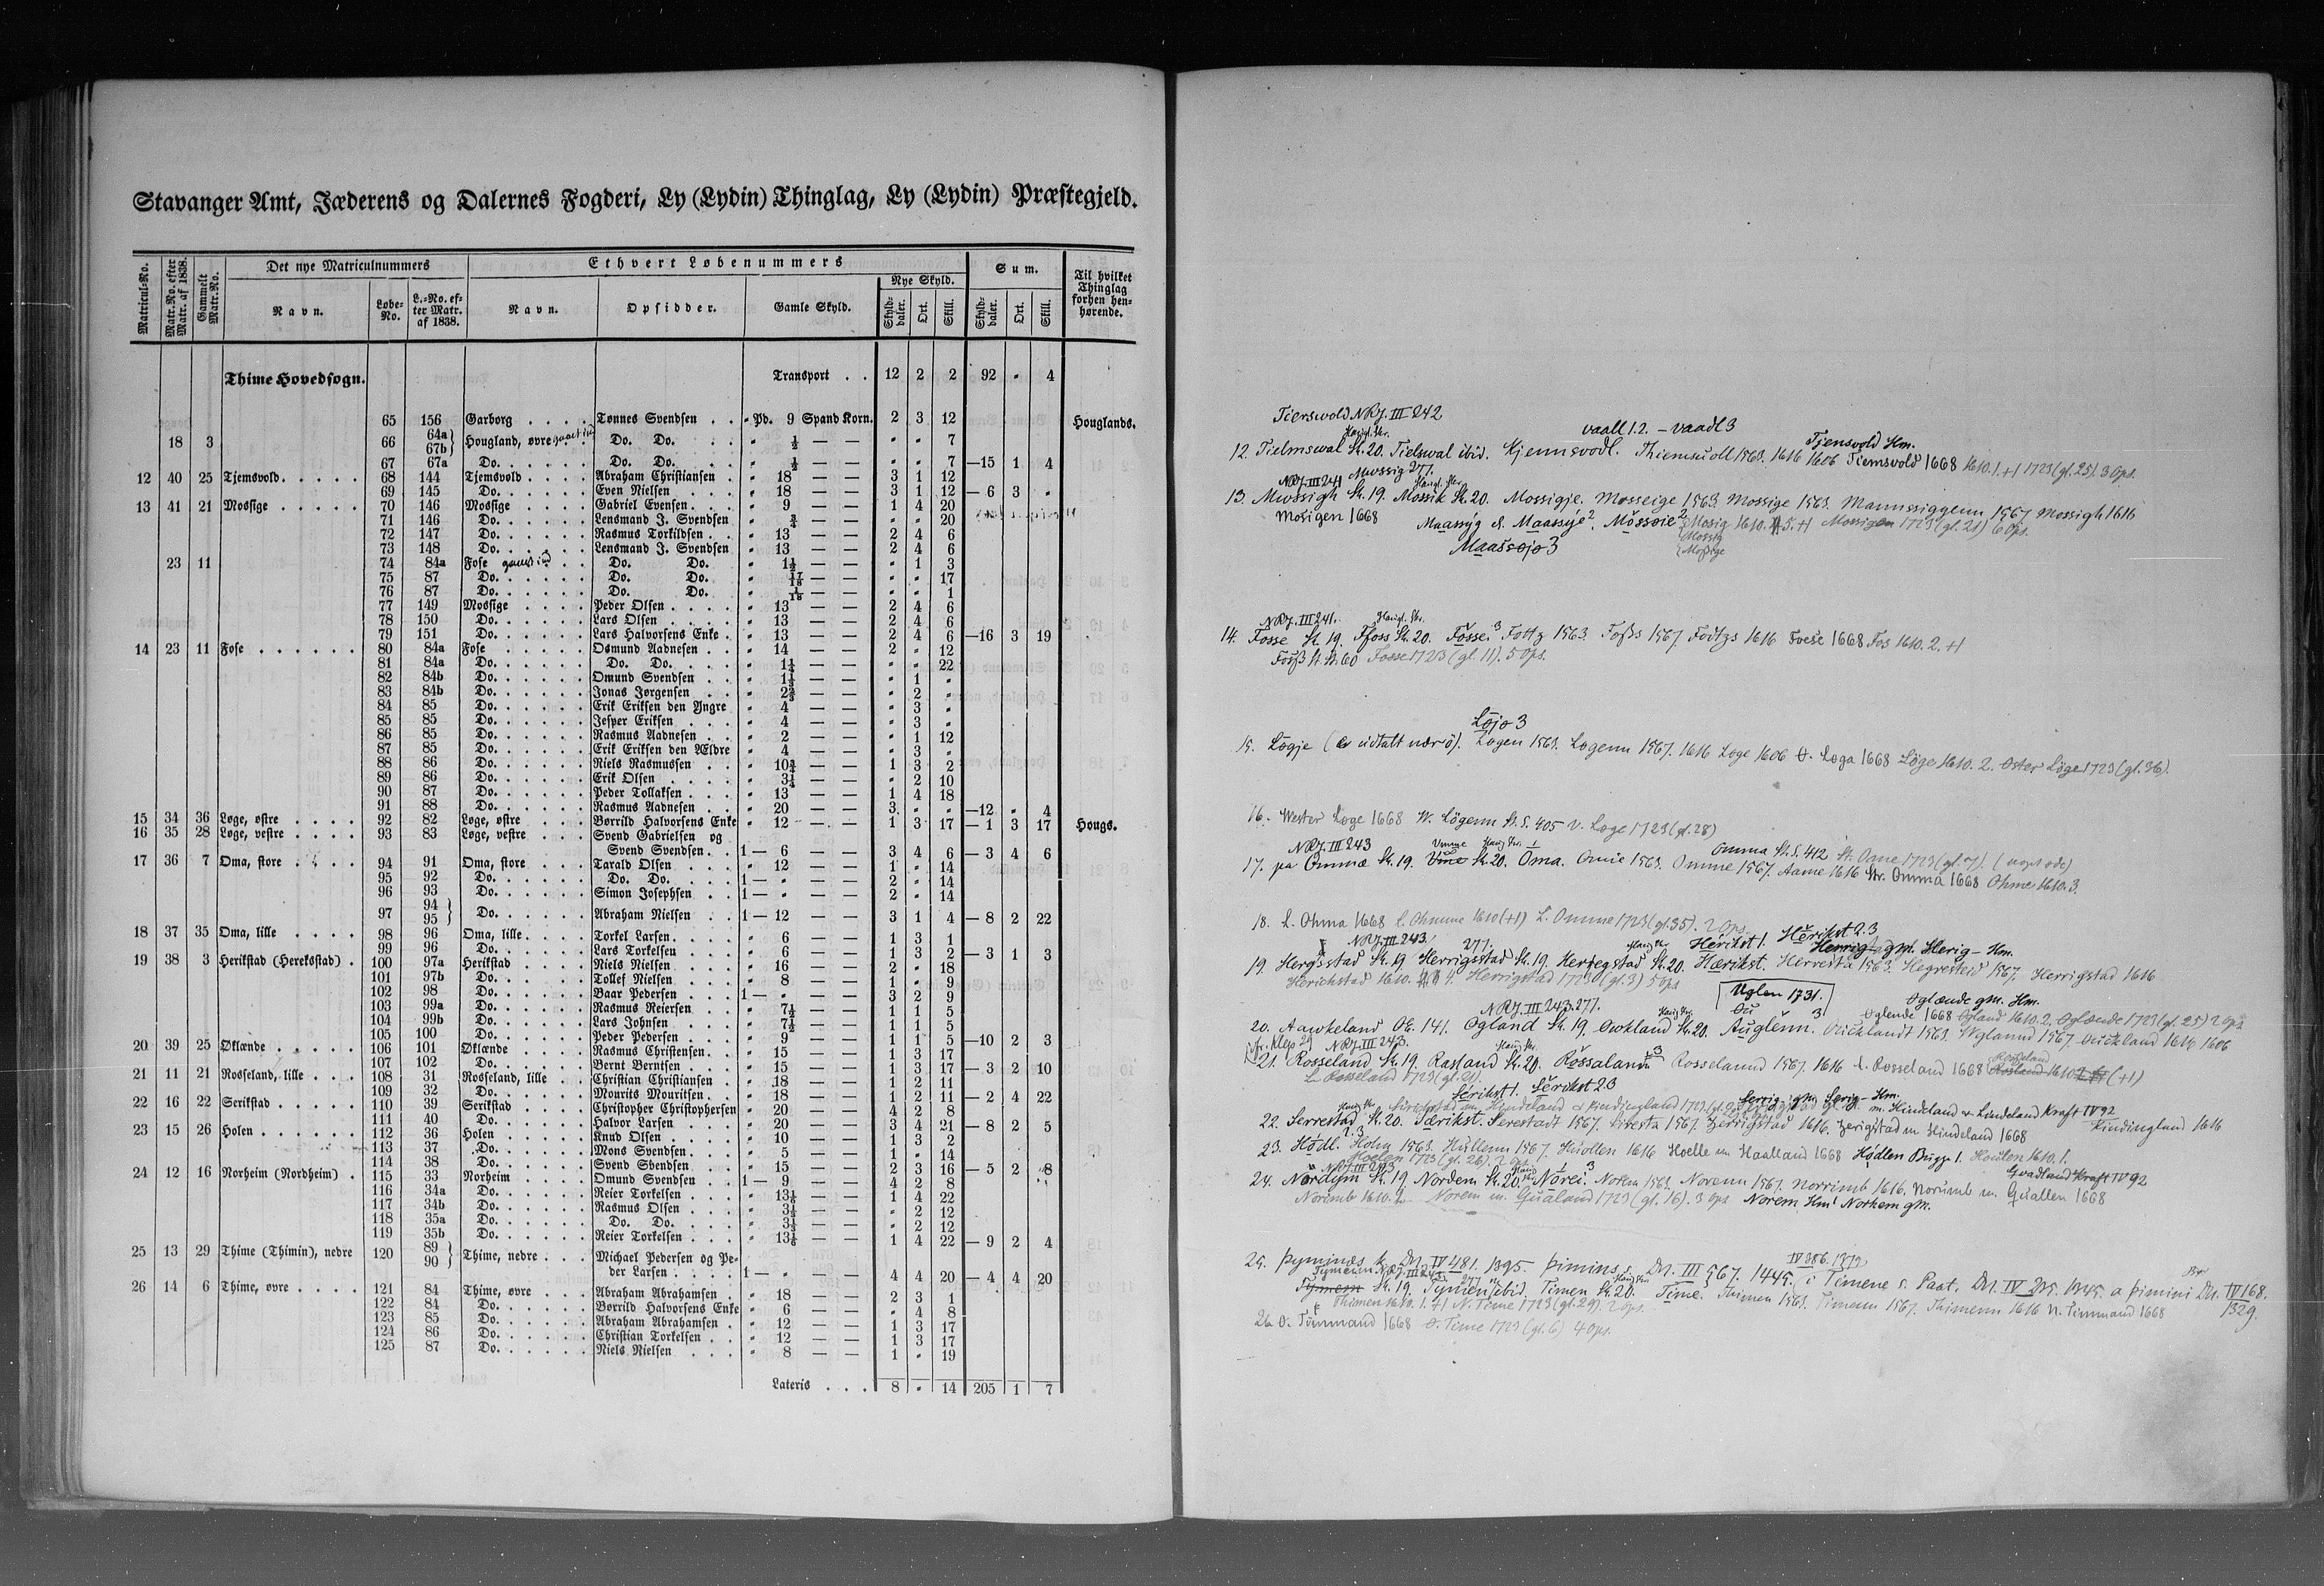 Stavanger Amt, Jæderens og Dalernes Fogderi, Ly (Lydin) Thinglag, Ly (Lydin) Præstegjeld.
Matricul-No. Matr.-No. efter Matr. af 1838. Gammelt Matr.-No. Det nye Matriculnummers Ethvert Løbenummers Sum. Til hvilket Thinglag forhen henhørende.
Navn. Løbe-No. L.-No. efter Matr. af 1838. Navn. Opsidder. Gamle Skyld. Nye Skyld. Skylddaler. Ort. Skill. Skylddaler. Ort. Skill.
Thime Hovedsogn. Transport . . 12 2 2 92 " 4
65 156 Garborg . . . . . Tønnes Svendsen . . " Pd. 9 Spand Korn. 2 3 12 Houglands.
18 3 66 64a 67b } Hougland, øvre Do. Do. . . " ½ — — " " 7
67 67a Do. . . . . . . Do. Do. . . " ½ — — " " 7 —15 1 4
12 40 25 Tjemsvold . . . . . 68 144 Tjemsvold . . . . Abraham Christiansen . " 18 — — 3 1 12
69 145 Do. . . . . . . Even Nielsen . . . " 18 — — 3 1 12 — 6 3 "
13 41 21 Mossige . . . . . 70 146 Mossige . . . . Gabriel Evensen . . . " 9 — — 1 4 20
71 146 Do. . . . . . . Lensmand J. Svendsen " ¾ — — " " 20
72 147 Do. . . . . . . Rasmus Torkildsen . . " 13 — — 2 4 6
73 148 Do. . . . . . . Lensmand J. Svendsen " 13 — — 2 4 6
23 11 74 84a Fose . . . Do. Do. " 1½ — — " 1 3
75 87 Do. . . . . . . Do. Do. " 17/18 — — " " 17
76 87 Do. . . . . . . Do. Do. " 1/18 — — " " 1
77 149 Mossige . . . . Peder Olsen . . . . " 13 — — 2 4 6
78 150 Do. . . . . . . Lars Olsen . . . . " 13 — — 2 4 6
79 151 Do. . . . . . . Lars Halvorsens Enke . " 13 — — 2 4 6 —16 3 19
14 23 11 Fose . . . . . . 80 84a Fose . . . . . Osmund Aadnesen . . " 14 — — 2 " 12
81 84a Do. . . . . . . Do. Do. . . . " 1¼ — — " " 22
82 84b Do. . . . . . . Omund Svendsen . . " 1⅓ — — " 1 "
83 84b Do. . . . . . . Jonas Jørgensen . . " 2⅔ — — " 2 "
84 85 Do. . . . . . . Erik Eriksen den Yngre " 4 — — " 3 "
85 85 Do. . . . . . . Jesper Eriksen . . . " 4 — — " 3 "
86 85 Do. . . . . . . Rasmus Aadnesen . . " 2 — — " 1 12
87 85 Do. . . . . . . Erik Eriksen den Ældre " 4 — — " 3 "
88 86 Do. . . . . . . Niels Rasmussen . . " 10¾ — — 1 3 2
89 86 Do. . . . . . . Erik Olsen . . . . " 3¼ — — " 2 10
90 87 Do. . . . . . . Peder Tollaksen . . " 13 — — 1 4 18
91 88 Do. . . . . . . Rasmus Aadnesen . . " 20 — — 3 " " —12 " 4
15 34 36 Løge, østre . . . . 92 82 Løge, østre . . . Børrild Halvorsens Enke " 12 — — 1 3 17 — 1 3 17 Hougs.
16 35 28 Løge, vestre . . . . 93 83 Løge, vestre . . . Svend Gabrielsen og
Svend Svendsen . . 1 — 6 — — 3 4 6 — 3 4 6
17 36 7 Oma, store . . . . 94 91 Oma, store . . . Tarald Olsen . . . " 12 — — 1 " 14
95 92 Do. . . . . . . Do. Do. . . . 1 — " — — 2 " 14
96 93 Do. . . . . . . Simon Josephsen . . 1 — " — — 2 " 14
97 94 95 } Do. . . . . . . Abraham Nielsen . . 1 — 12 — — 3 1 4 — 8 2 22
18 37 35 Oma, lille . . . . 98 96 Oma, lille . . . . Torkel Larsen . . . " 6 — — 1 3 1
99 96 Do. . . . . . . Lars Torkelsen . . " 6 — — 1 3 2 — 3 1 3
19 38 3 Herikstad (Hereksstad) . 100 97a Herikstad . . . . Niels Nielsen . . . " 16 — — 2 " 18
101 97b Do. . . . . . . Tollef Nielsen . . . " 8 — — 1 " 9
102 98 Do. . . . . . . Baar Pedersen . . . 1 — " — — 3 2 9
103 99a Do. . . . . . . Rasmus Reiersen . . " 7½ — — 1 1 5
104 99b Do. . . . . . . Lars Johnsen . . . " 7½ — — 1 1 5
105 100 Do. . . . . . . Peder Pedersen . . . " 9 — — 1 1 5 —10 2 3
20 39 25 Øklænde . . . . . 106 101 Øklænde . . . . Rasmus Christensen . . " 15 — — 1 3 17
107 102 Do. . . . . . . Bernt Berntsen . . . " 15 — — 1 3 17 — 3 2 10
21 11 21 Rosseland, lille . . . 108 31 Rosseland, lille . . Christian Christiansen . " 18 — — 1 2 11
109 32 Do. . . . . . . Mourits Mouritsen . . " 18 — — 1 2 11 — 2 4 22
22 16 22 Serikstad . . . . . 110 39 Serikstad . . . . Christopher Christophersen " 20 — — 4 2 8
111 40 Do. . . . . . . Halvor Larsen . . . " 20 — — 3 4 21 — 8 2 5
23 15 26 Holen . . . . . . 112 36 Holen . . . . . Knud Olsen . . . . " 10 — — 1 3 2
113 37 Do. . . . . . . Mons Svendsen . . . " 5 — — 1 " 14
114 38 Do. . . . . . . Svend Svendsen . . " 15 — — 2 3 16 — 5 2 8
24 12 16 Norheim (Nordheim) . 115 33 Norheim . . . . Omund Svendsen . . 1 — 9 — — 4 2 8
116 34a Do. . . . . . . Reier Torkelsen . . . " 13⅙ — — 1 4 22
117 34b Do. . . . . . . Rasmus Olsen . . . " 3⅓ — — " 2 12
118 35a Do. . . . . . . Do. Do. . . . " 3⅓ — — " 2 12
119 35b Do. . . . . . . Reier Torkelsen . . . " 13⅙ — — 1 4 22 — 9 2 4
25 13 29 Thime (Thimin), nedre 120 89 90 } Thime, nedre . . . Michael Pedersen og Pe-
der Larsen . . . . 1 — " — — 4 4 20 — 4 4 20
26 14 6 Thime, øvre . . . . 121 84 Thime, øvre . . . Abraham Abrahamsen . " 18 — — 2 3 1
122 84 Do. . . . . . . Børrild Halvorsens Enke " 6 — — " 4 8
123 85 Do. . . . . . . Abraham Abrahamsen . " 12 — — 1 3 17
124 86 Do. . . . . . . Christian Torkelsen . . " 12 — — 1 3 17
125 87 Do. . . . . . . Niels Nielsen . . . " 8 — — 1 " 19
Lateris . . . 8 " 14 205 1 7
Tierswold NRJ. III 242
vaall 1.2. – vaadl 3
Tjensvold Hm.
12. Tielmswal St. 20. Tielswal ibid. Kjemsvodl. Thiemsuoll 1563. 1616 1606 Tiemsvold 1668 1610. 1. +1 1723 (gl. 25). 3 Ops.
NRJ. III 241 Mwssig 277.
13. Mwssigh St. 19. Mossik St. 20. Mossigje. Mosseige 1563. Mossige 1563. Maunssiggenn 1567 Mossigh 1616
Mosigen 1668 Maassÿg Mossig 1610. Mossigen 1723 (gl. 21) 6 Ops.
Mossig
Maassojo 3 Mossige
NRJ. III 241.
14. Fosse St. 19. Ffoss St. 20. Fosse. Fottz 1563. Foss 1567. Fodtzs 1616 Foese 1668 Fos 1610. 2. +1
St. 60 Fosse 1723 (gl. 11). 5 Ops.
Løjo 3
15. Løgje (udtalt nær ö). Logen 1563. Logenn 1567. 1616 Loge 1606 Ø. Loga 1668 Löge 1610. 2. Øster Løge 1723 (gl. 36).
16. Wester Loge 1668 W. Lögenn St. S. 405 V. Loge 1723 (gl. 28)
NRJ. III 243 Omma St. S. 412 St. Ome 1723 (gl. 7).
17. paa Ommæ St. 19. St. 20. Oma. Omie 1563. Omme 1567. Aame 1616 Str. Omma 1668 Ohme 1610. 3.
18. L. Ohma 1668 L. Ohmme 1610 (+1) L. Omme 1723 (gl. 35). 2 Ops.
NRJ. III 243. 277. Herikst 1. Herikst 2.3 Herig- gm. Herig- Hm.
19. Hergsstad St. 19 Herrigsstad St. 19. Herregstad St. 20. Hærikst. Herresta 1563. Hegresteid 1567. Herrigstad 1616
Herichstad 1610. 4. Herrigstad 1723 (gl. 3) 5 Ops
Uglen 1731.
NRJ. III 243. 277. Øglænde gm. Hm.
Øglende 1668 Ogland 1610. 2. Øglænde 1723 (gl. 25) 2 Ops
20. Aawkeland OE. 141. Ogland St. 19. Owkland St. 20. Auglenn. Ouchlandt 1563. Wglannd 1567. Ouckland 1616 1606
fr. Klep 29 NRJ. III 243.
21. Rosseland St. 19. Rasland St. 20. Rossaland Rosselannd 1567. 1616 L. Rosseland 1668 1610 (+1)
L. Rosseland 1723 (gl. 21).
Serikst 1. Serikst 2 3 Serrig- gm. Serig- Hm.
m. Hindeland & Lindeland Kraft IV 92
22. Serrestad St. 20. Særikst. Serestadt 1567. Siresta 1567. Zerrigstad 1616. Zerigstad m Hindeland 1668 Kindingland 1616
23. Hodl. Holin 1563. Hullenn 1567. Huollen 1616 Hoelle m Haalland 1668 Hodlen Bugge 1. Houlen 1610. 1.
Hoelen 1723 (gl. 26). 2 Ops
NRJ. III 243 Gvadland Kraft IV 92
24. Nordym St. 19 Nordem St. 20. Norei. Norem 1563. Norenn 1567. Norrimb 1616. Norumb m. Guallen 1668
Norimb 1610. 2 Norem m. Gualand 1723 (gl. 16). 3 Ops Norem Hm. Norhem gm.
25. Þyminæs k. Dn. IV 481. 1395. Þimins s. Dn. III 567. 1445. i Timene s. Paat. Dn. IV 386. 1372 a Þimini Dn. IV 168. 1329.
Tymenn NRJ. III 243 St. 19. Tymen ibid. Timen St. 20. Time. Thimen 1563. Timenn 1567. Thimenn 1616 N. Timmand 1668
Thimen 1610. 1. +1 N. Time 1723 (gl. 29). 2 Ops.
26. Ø. Timmand 1668 Ø. Time 1723 (gl. 6) 4 Ops.